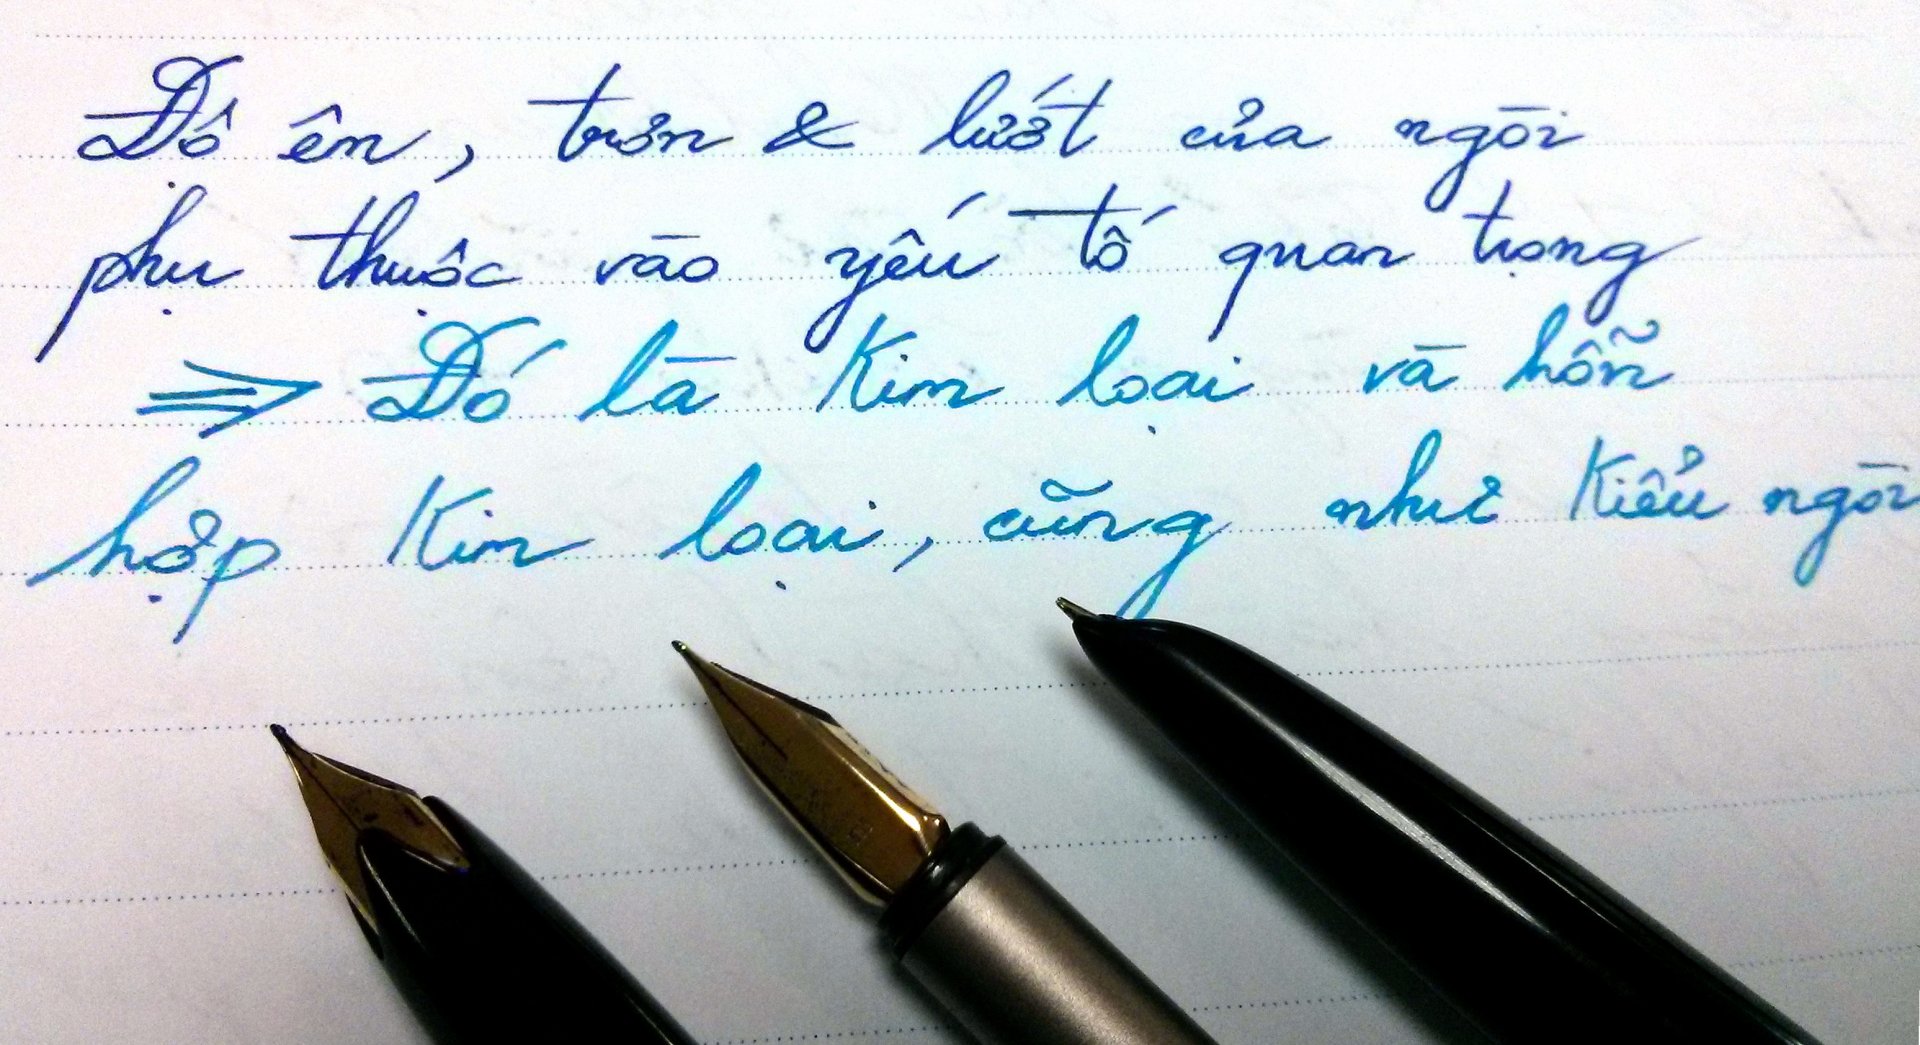 Độ êm, trơn & lướt của ngòi
phụ thuộc vào yếu tố quan trọng
⇒ Đó là Kim loại và hỗn
hợp Kim loại, cũng như Kiểu ngòi